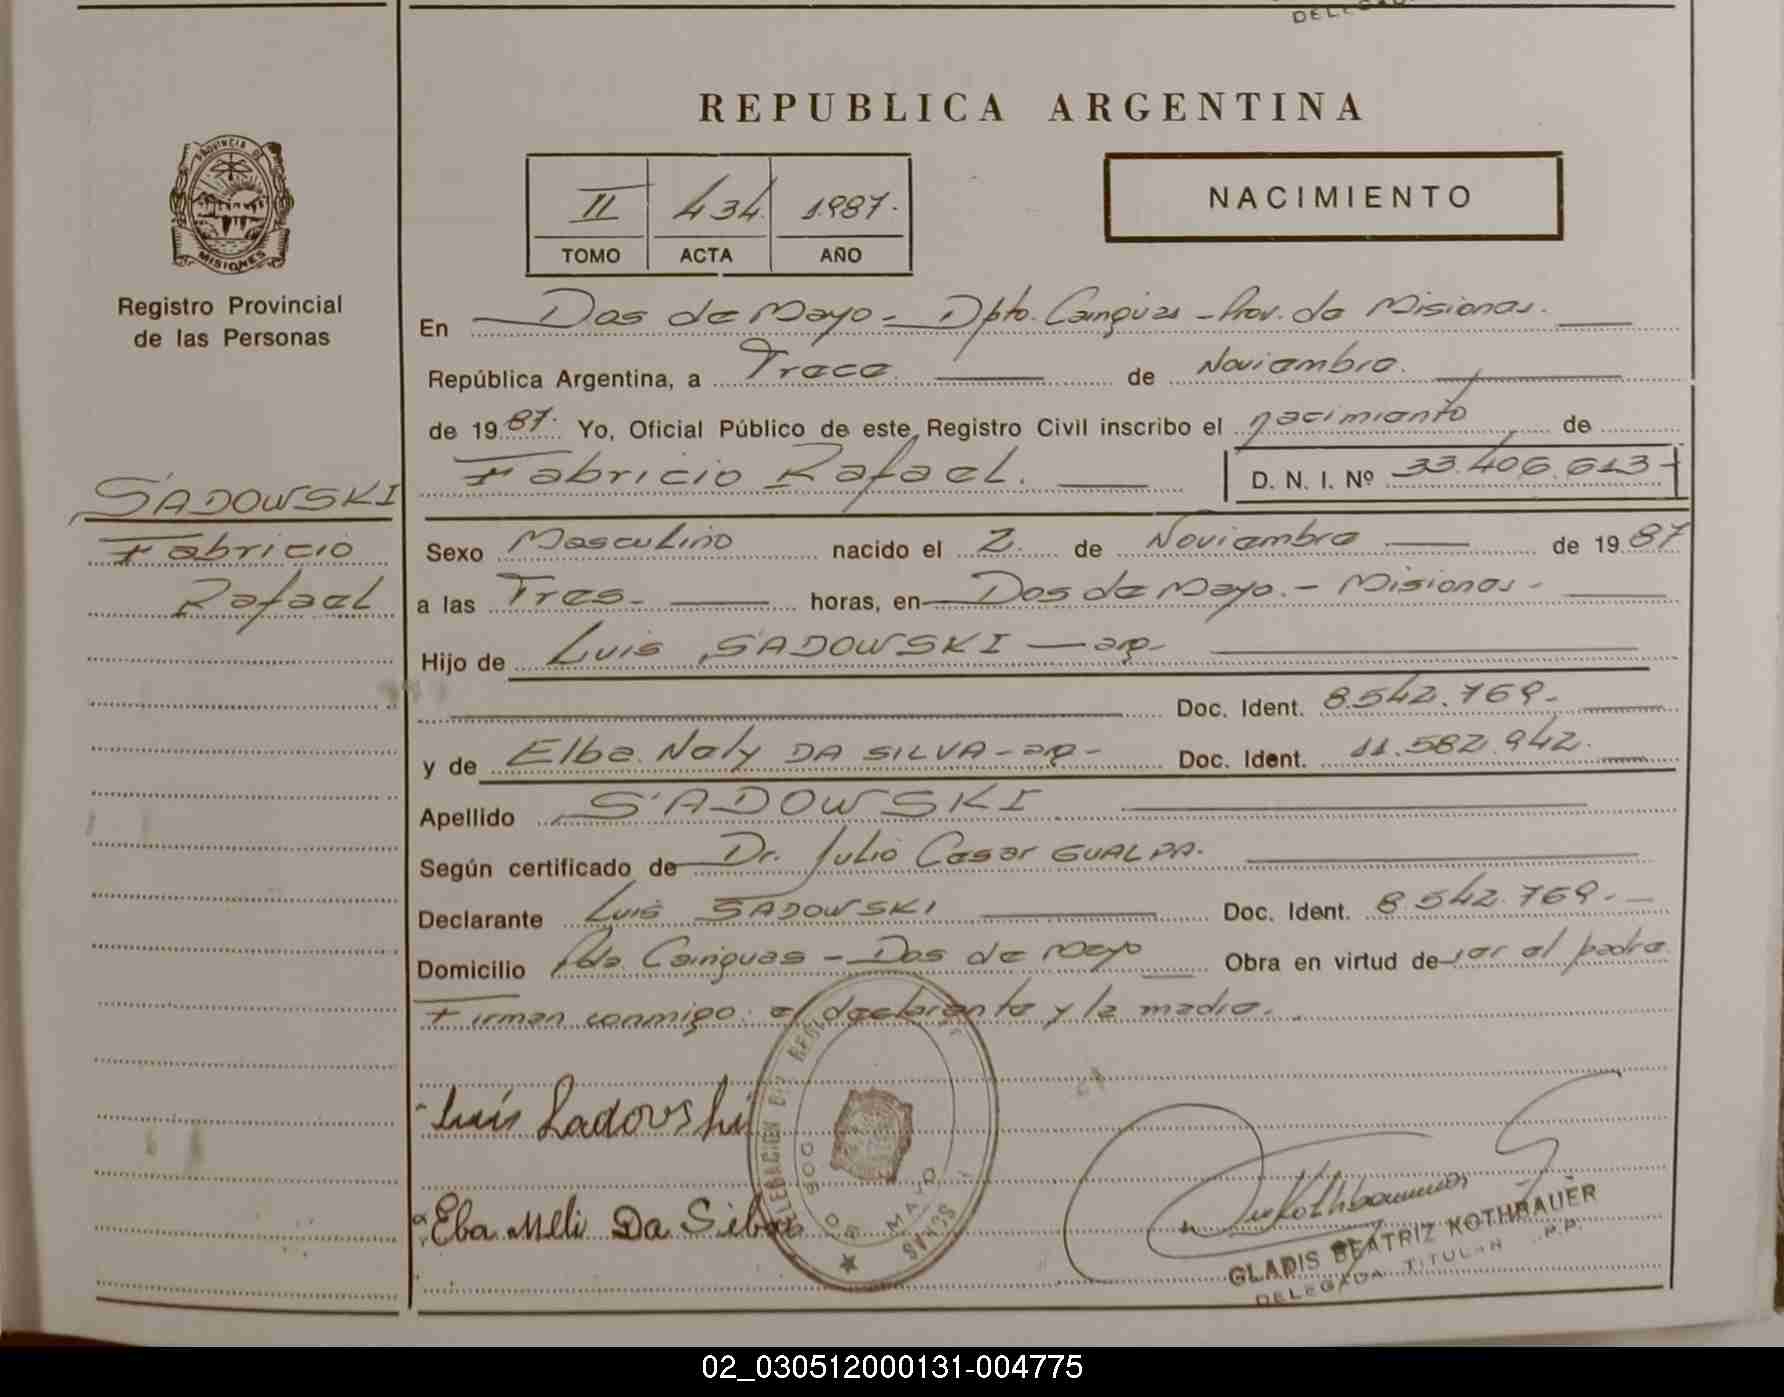 REPUBLICA ARGENTINA
PROVINCIA DE
MISIONES
II 434 1987.
TOMO ACTA AÑO
NACIMIENTO
Registro Provincial
de las Personas
SADOWSKI
Fabricio
Rafael
En Dos de Mayo - Dpto. Cainguas - Prov. de Misiones.
República Argentina, a Trece de Noviembre.
de 1987. Yo, Oficial Público de este Registro Civil inscribo el nacimiento de
Fabricio Rafael. D. N. I. Nº 33.406.613
Sexo Masculino nacido el 2. de Noviembre de 1987
a las Tres- horas, en Dos de Mayo. - Misiones -
Hijo de Luis SADOWSKI - arg-
Doc. Ident. 8.542.769.-
y de Elba Nely DA SILVA - arg - Doc. Ident. 11.582.942.
Apellido SADOWSKI
Según certificado de Dr. Julio Cesar GUALPA.
Declarante Luis SADOWSKI Doc. Ident. 8.542.769.-
Domicilio Pdo. Cainguas - Dos de Mayo Obra en virtud de ser el padre
Firman conmigo: el declarante y la madre.
Luís Sadovski
Eba Meli Da Silva
DOS DE MAYO
GLADIS BEATRIZ KOTHBAUER
DELEGADA TITULAR
02_030512000131-004775